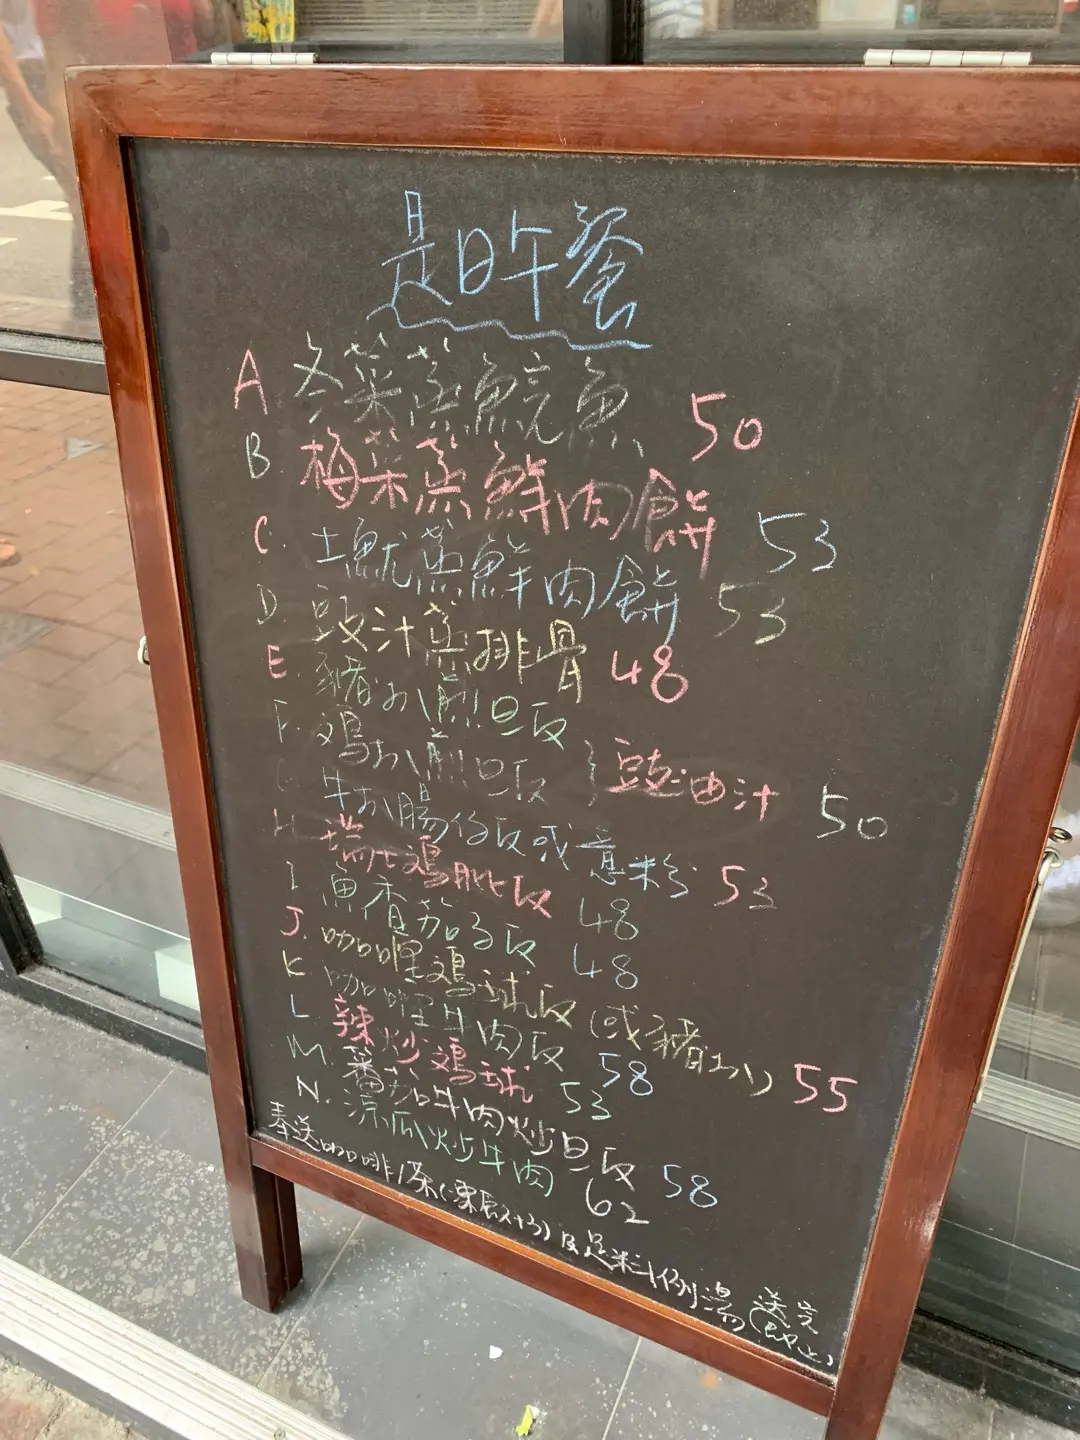 是日午餐
A 冬菜蒸鯇魚 50
B. 梅菜蒸鮮肉餅 53
C. 土魷蒸鮮肉餅 53
D. 豉汁蒸排骨 48
E. 豬扒煎旦反
F. 鸡扒煎旦反 } 豉油汁 50
G 牛扒腸仔反或意粉 53
H. 瑞士鸡肶反 48
I 魚香茄子反 48
J. 咖喱鸡球反(或豬扒) 55
K. 咖喱牛肉反 58
L 辣炒鸡球 53
M. 蕃茄牛肉炒旦反 58
N. 凉瓜炒牛肉 62
奉送咖啡/茶(凍飲+3)及足料例湯(送完即止)